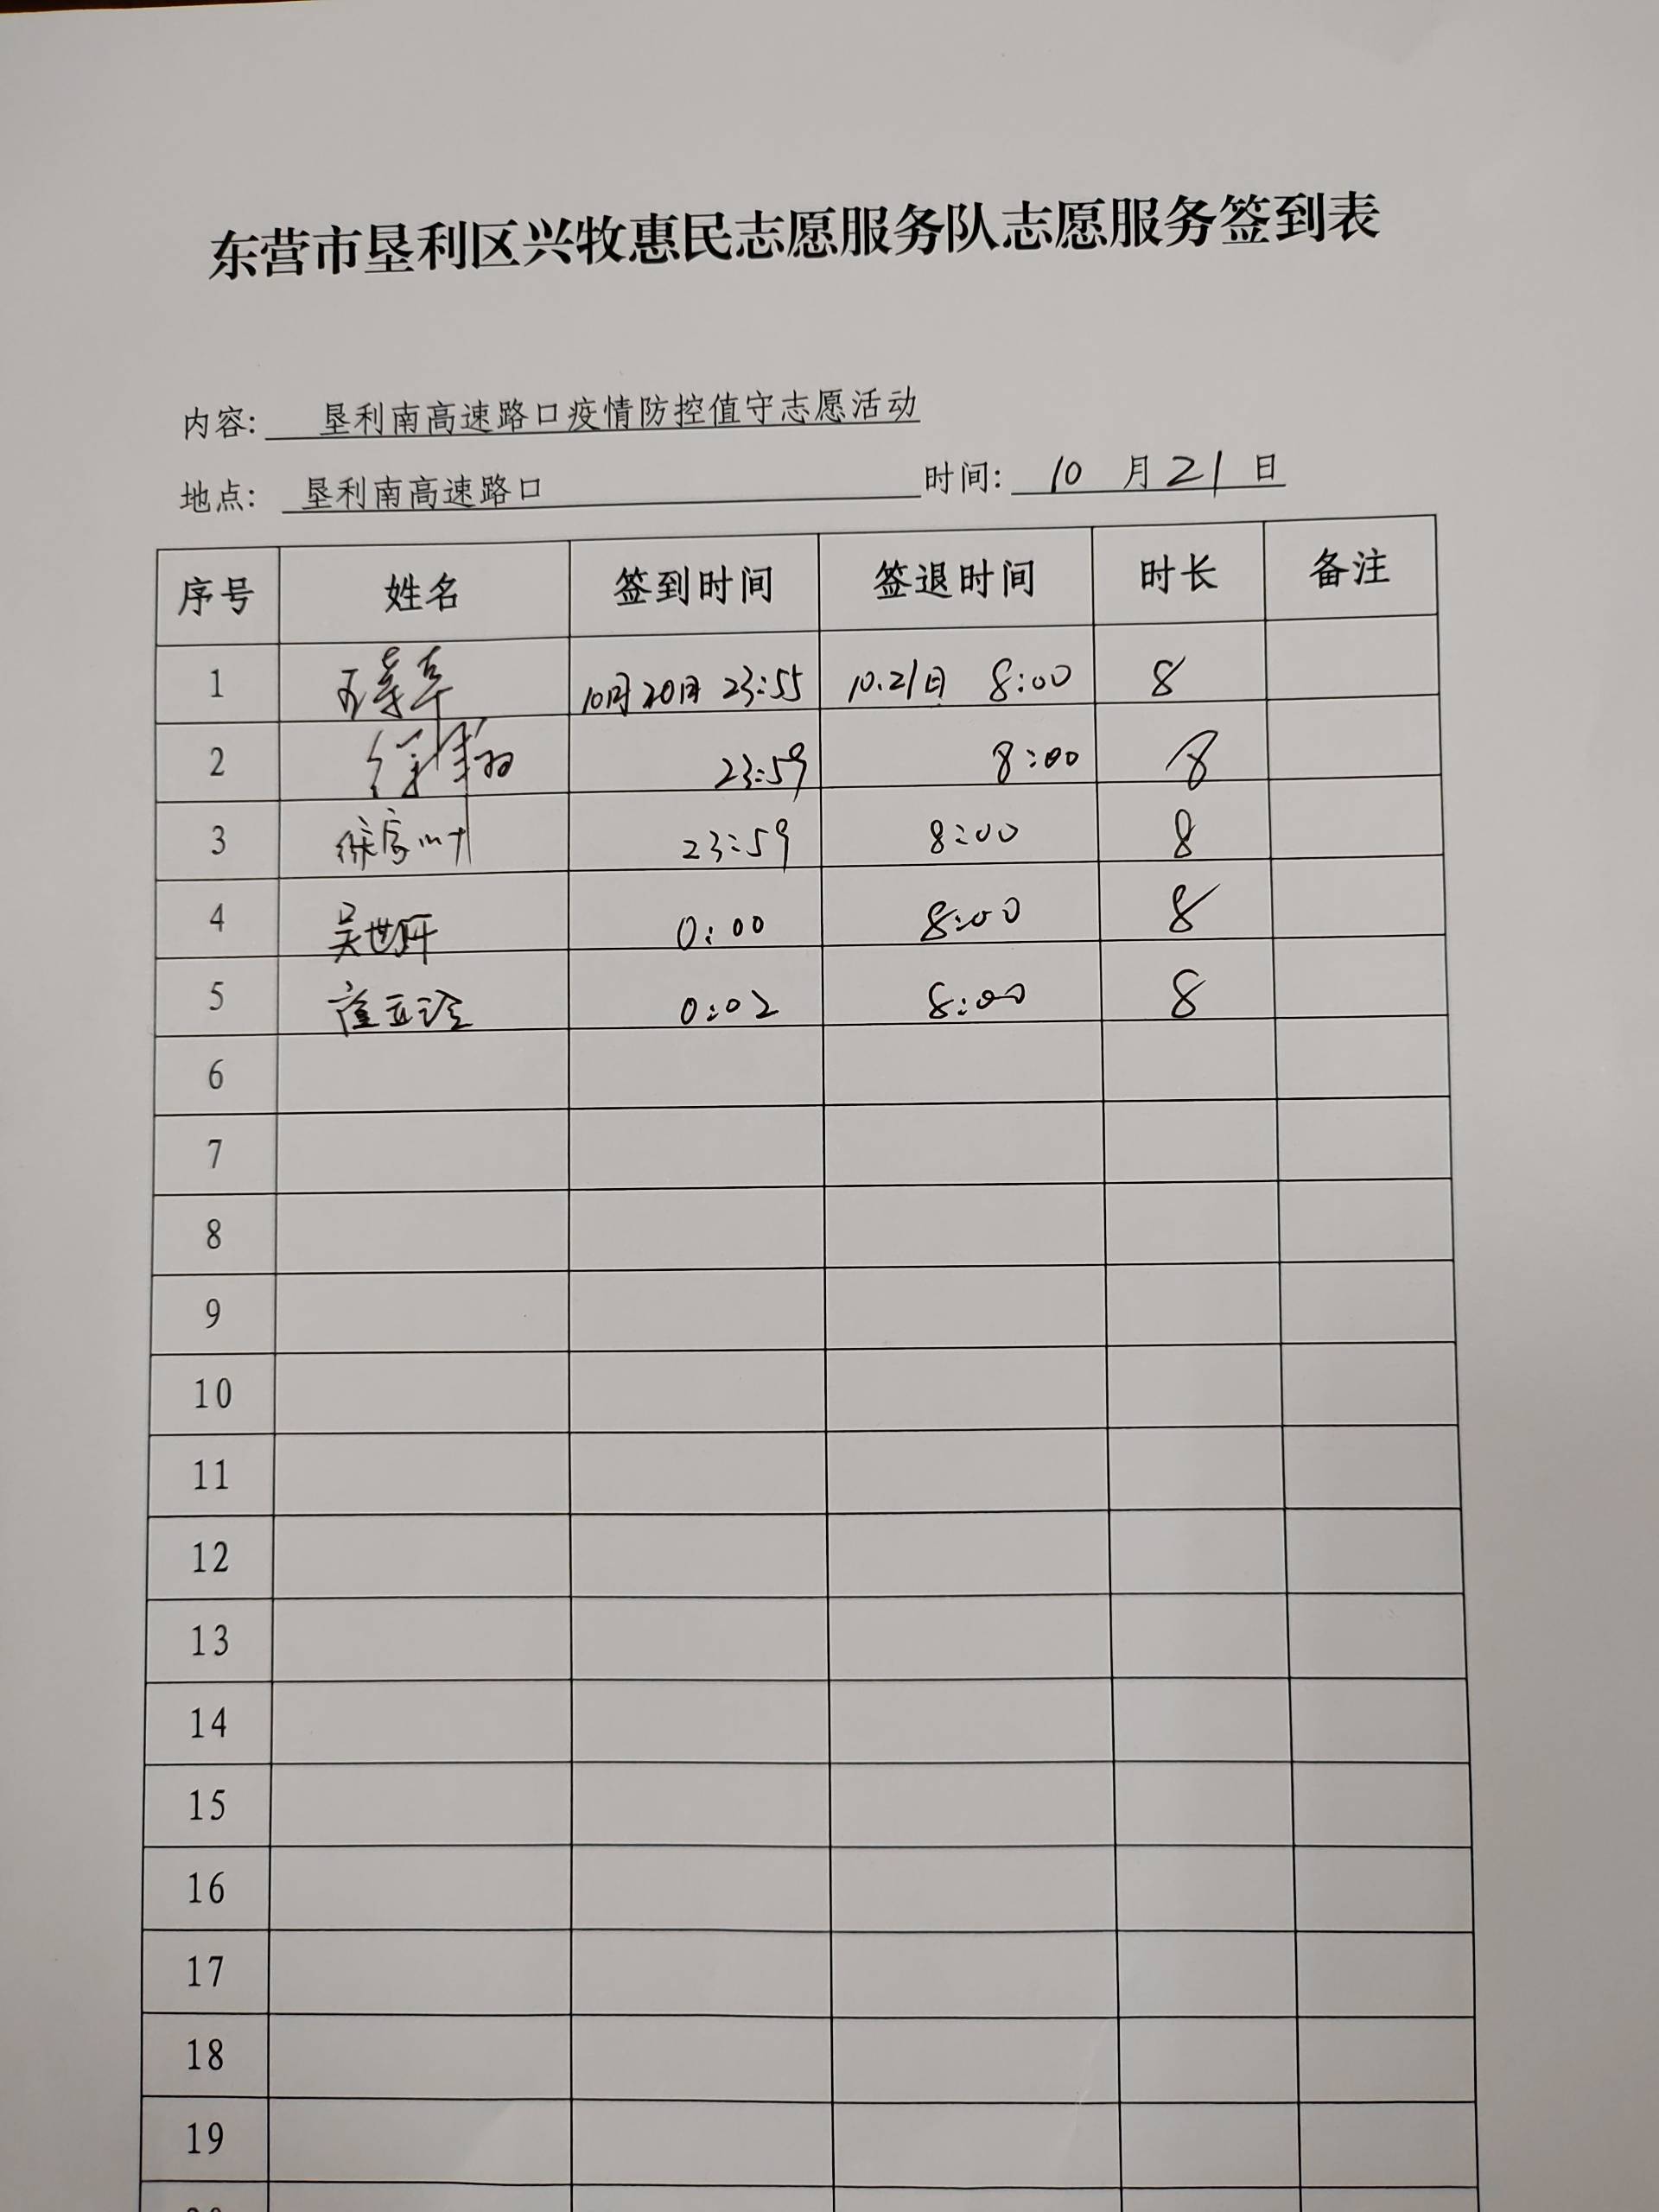 东营市垦利区兴牧惠民志愿服务队志愿服务签到表
内容: 垦利南高速路口疫情防控值守志愿活动
地点: 垦利南高速路口 时间: 10 月 21 日
序号 姓名 签到时间 签退时间 时长 备注
1 10月20日 23:55 10.21日 8:00 8
2 23:59 8:00 8
3 23:59 8:00 8
4 吴世 0:00 8:00 8
5 0:02 8:00 8
6
7
8
9
10
11
12
13
14
15
16
17
18
19